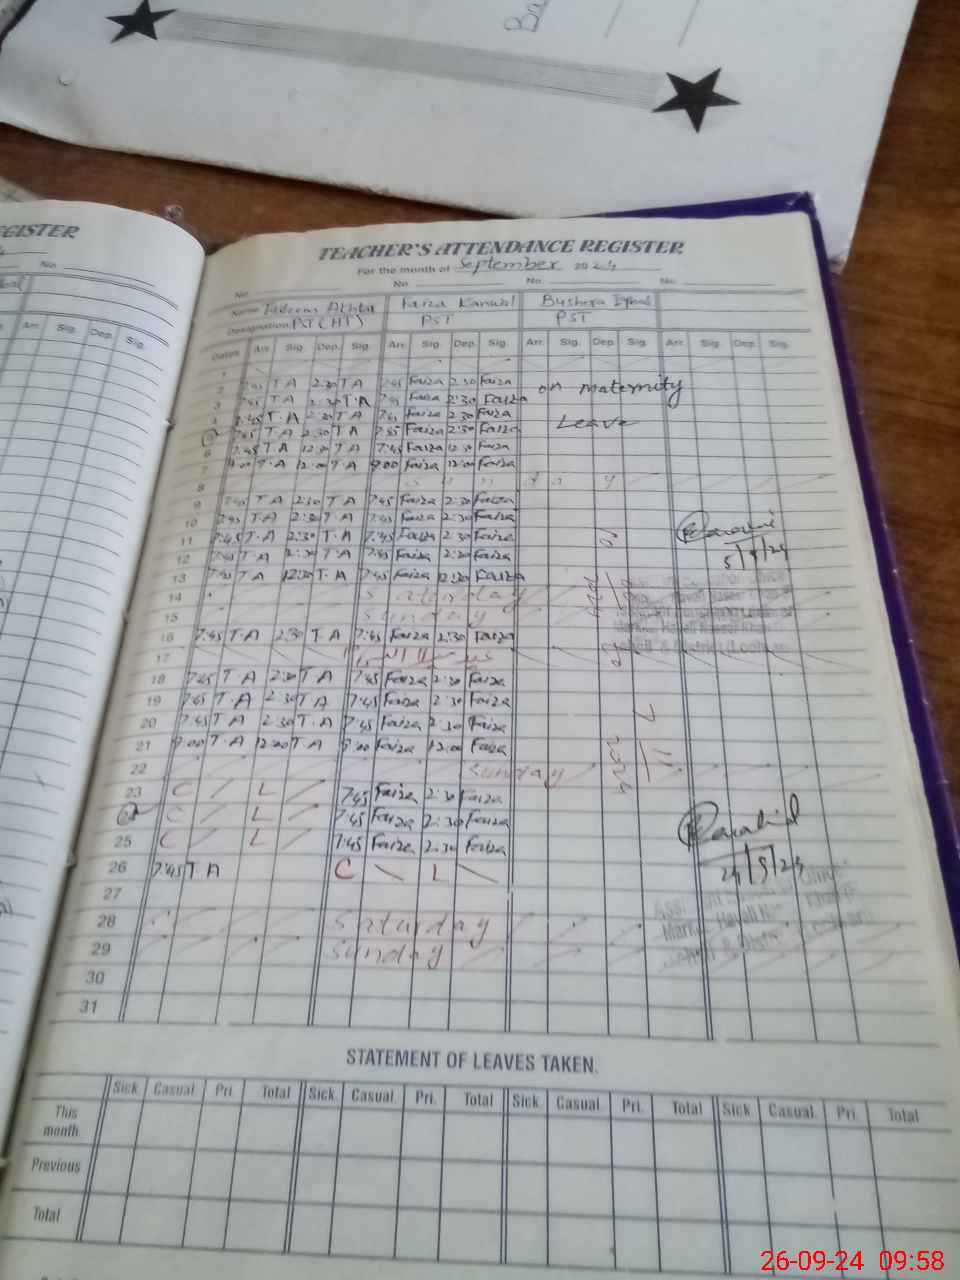 Ba
EGISTER
No
Arr. Sig. Dep. Sig.
TEACHER'S ATTENDANCE REGISTER
For the month of September 2024
No No No. No.
Name Akhtar Faiza Kanwal Bushera Iqbal
Designation PST (HT) PST PST
Dates Arr. Sig. Dep. Sig. Arr. Sig. Dep. Sig. Arr. Sig. Dep. Sig. Arr. Sig. Dep. Sig.
1
2 7:45 T A 2:30 T A 7:45 Faiza 2:30 Faiza on maternity
3 7:45 T A 2:30 T.A 7:45 Faiza 2:30 Faiza
4 7:45 T.A 2:30 T A 7:45 Faiza 2:30 Faiza Leave
7:45 T A 2:30 T A 7:45 Faiza 2:30 Faiza
6 7:45 T A 12:30 T A 7:45 Faiza 12:30 Faiza
7 9:00 T.A 12:00 T A 9:00 Faiza 12:00 Faiza
8 Sunday
9 7:45 T.A 2:30 T A 7:45 Faiza 2:30 Faiza
10 7:45 T.A 2:30 T.A 7:45 Faiza 2:30 Faiza
11 7:45 T.A 2:30 T.A 7:45 Faiza 2:30 Faiza
12 7:45 T A 2:30 T.A 7:45 Faiza 2:30 Faiza 5/9/24
13 7:45 T A 12:30 T.A 7:45 Faiza 12:30 Faiza
14 Saturday
15 Sunday
16 7:45 T.A 2:30 T.A 7:45 Faiza 2:30 Faiza
17
18 7:45 T A 2:30 T A 7:45 Faiza 2:30 Faiza
19 7:45 T A 2:30 T A 7:45 Faiza 2:30 Faiza
20 7:45 T A 2:30 T.A 7:45 Faiza 2:30 Faiza
21 9:00 T.A 12:00 T.A 9:00 Faiza 12:00 Faiza
22 Sunday
23 C / L / 7:45 Faiza 2:30 Faiza
C / L / 7:45 Faiza 2:30 Faiza
25 C / L / 7:45 Faiza 2:30 Faiza
26 7:45 T.A C \ L \ 24/9/24
27
28 Saturday
29 Sunday
30
31
STATEMENT OF LEAVES TAKEN.
Sick. Casual Pri. Total Sick. Casual Pri. Total Sick. Casual. Pri. Total Sick. Casual. Pri. Total
This month
Previous
Total
26-09-24 09:58